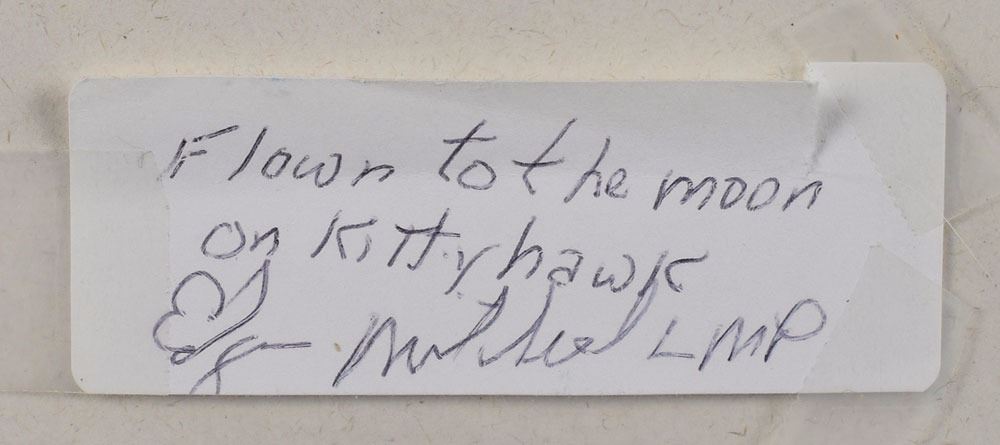 Flown to the moon
on Kittyhawk
Edgar Mitchell LMP